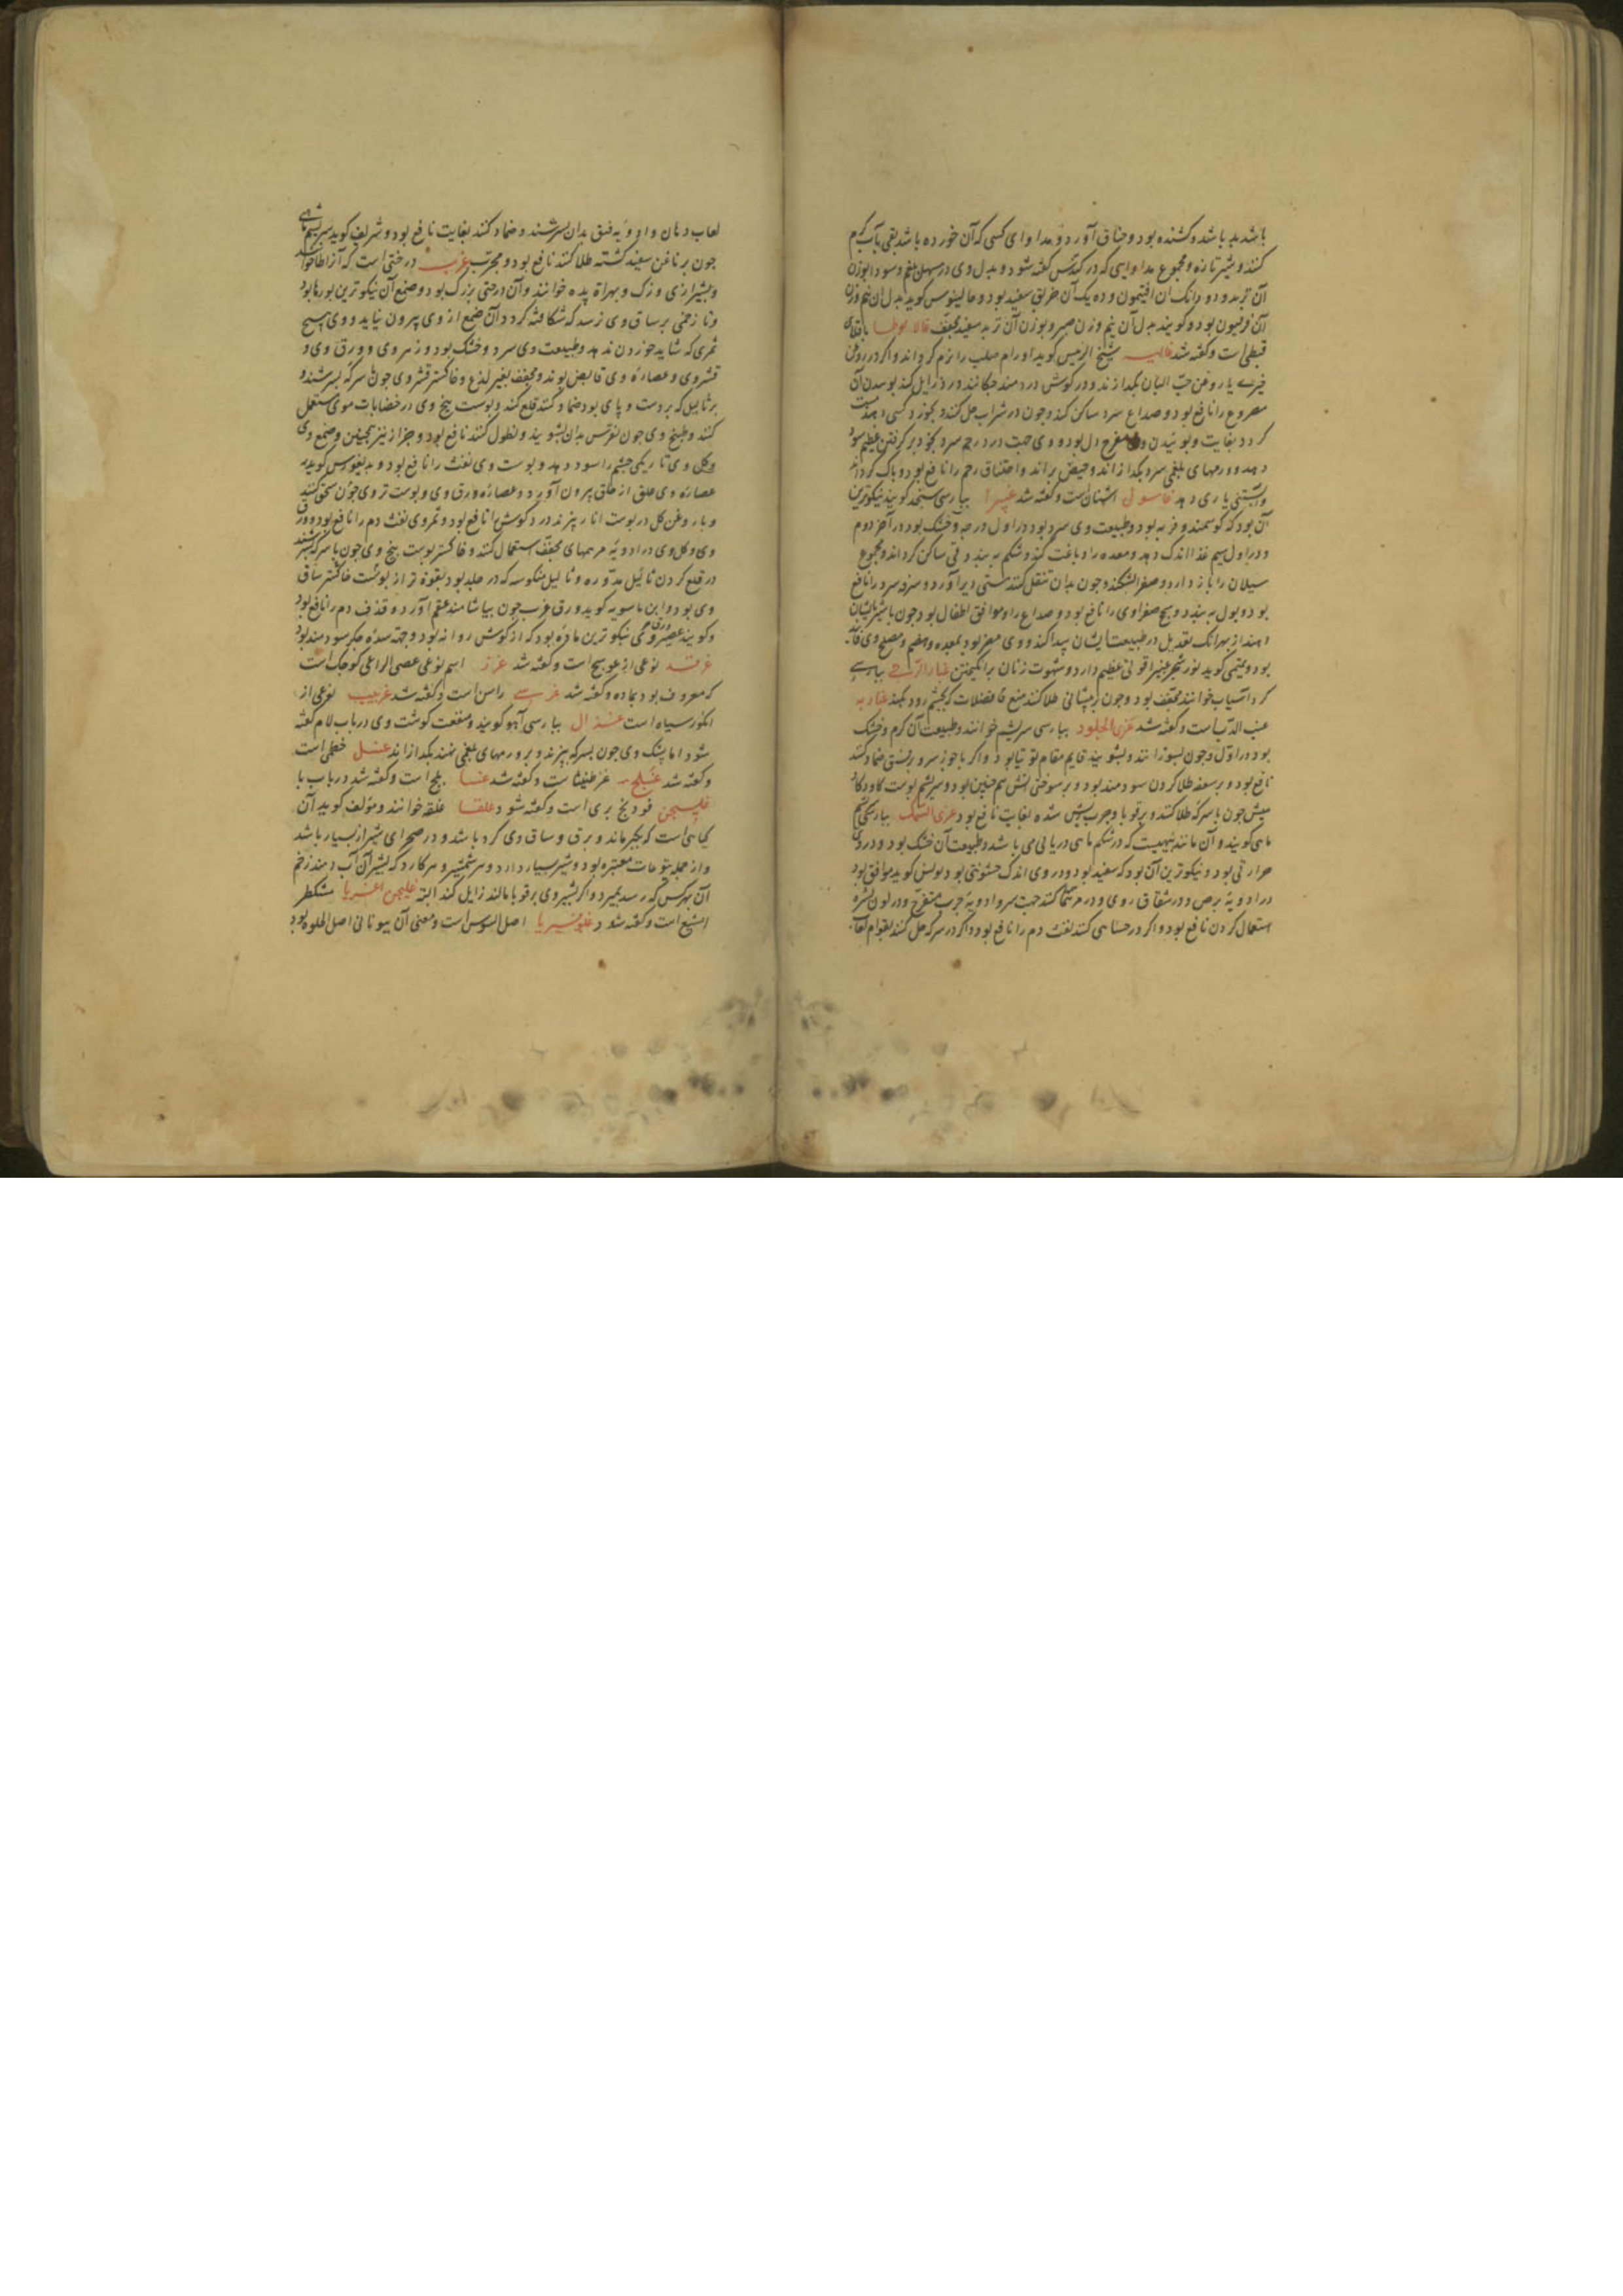 باشد بد باشد و کشنده بود و خناق آورد و مداوای کسی که آن خورده باشد بقی بآب گرم
کنند و شیر تازه و مجموع مداوایی که در کندس گفته شود و بدل وی در مسهل بلغم و سودا بوزن
آن تربد و دو دانک آن افتیمون و ده یک آن خربق سفید بود و جالینوس گوید بدل آن نیم وزن
آن فرفیون بود و گویند بدل آن نیم وزن صبر و بوزن آن تربد سفید مجفف غالا لوطا باقلای
قبطی است و گفته شد غالیه شیخ الرییس گوید اورام صلب را نرم گرداند و اگر در روغن
خیری یا روغن حب البان بگدازند و در گوش دردمند چکانند درد زایل کند بوییدن آن
مصروع را نافع بود و صداع سرد ساکن کند و چون در شراب حل کنند و بخورد کسی دهند مست
گردد بغایت و بوییدن وی مفرح دل بود و وی جهت درد رحم سرد بخود برگرفتن عظیم سود
دهد و ورمهای بلغمی سرد بگدازاند و حیض براند و اختناق رحم را نافع بود و پاک گرداند
و آبستنی یاری دهد غاسول اشنان است و گفته شد غبیرا بپارسی سنجد گویند نیکوترین
آن بود که گوشمند و فربه بود و طبیعت وی سرد بود در اول درجه و خشک بود در آخر دوم
و در اول سیم غذا اندک دهد و معده را دباغت کند و شکم ببندد و قی ساکن گرداند و مجموع
سیلان را باز دارد و صفرا بشکند و چون بدان تنقل کنند مستی دیر آورد و سرفه سرد را نافع
بود و بول ببندد و سحج صفراوی را نافع بود و صداع را و موافق اطفال بود چون با شیر بایشان
دهند از بهر آنک تعدیل در طبیعت ایشان پیدا کند و وی مضر بود بمعده و هضم و مصلح وی فانید
بود و تمیمی گوید نور شجر غبیرا قوتی عظیم دارد و شهوت زنان برانگیختن غبار الرحی بپارسی
گرد آسیاب خوانند مجفف بود و چون بر پیشانی طلا کنند منع فضلات که بچشم رود بکند غبادیه
عنب الدب است و گفته شد غری الجلود بپارسی سریشم خوانند و طبیعت آن گرم و خشک
بود در اول و چون بسوزانند و بشویند قایم مقام توتیا بود و اگر با جوز سرو بر فتق ضماد کنند
نافع بود و بر سعفه طلا کردن سودمند بود و بر سوختگی آتش هم چنین بود و سریشم پوست گاو و گاو
میش چون با سرکه طلا کنند بر قوبا و جرب ریش شده بغایت نافع بود غری السمک بپارسی سریشم
ماهی گویند و آن مانند شبهیست که در شکم ماهی دریایی می باشد و طبیعت آن خشک بود و در وی
حرارتی بود و نیکوترین آن بود که سفید بود و در وی اندک خشونتی بود و بولس گوید موافق بود
در ادویه برص و در شقاق روی و در مرهمها کنند جهت سر و ادویه جرب متقرح و در لون بشره
استعمال کردن نافع بود و اگر در حسا می کنند نفث دم را نافع بود و اگر در سرکه حل کنند بقوام لعاب
لعاب دهان و ادویه فتق بدان سرشند و ضماد کنند بغایت نافع بود و شریف گوید سریشم ماهی
چون بر ناخن سفید گشته طلا کنند نافع بود و مجرب غرب درختی است که آنرا طا خوانند
و بشیرازی وزک و بهراة پده خوانند و آن درختی بزرگ بود و صمغ آن نیکوترین بورها بود
و تا زخمی بر ساق وی نرسد که شکافته گردد آن صمغ از وی بیرون نیاید و وی هیچ
ثمری که شاید خوردن ندهد و طبیعت وی سرد و خشک بود و زهر وی و ورق وی و
قشر وی و عصاره وی قابض بوند و مجفف بغیر لذع و خاکستر قشر وی چون با سرکه بسرشند و
بر ثالیل که بر دست و پای بود ضماد کنند قلع کند و پوست بیخ وی در خضابات موی مستعمل
کنند و طبیخ وی چون نقرس بدان بشویند و نطول کنند نافع بود و حزاز نیز همچنین و صمغ وی
و گل وی تاریکی چشم را سود دهد و پوست وی نفث را نافع بود و دیسقوریدوس گوید
عصاره وی علق از حلق بیرون آورد و عصاره ورق وی و پوست تر وی چون سحق کنند
و با روغن گل در پوست انار بپزند درد گوش را نافع بود و ثمر وی نفث دم را نافع بود و ورق
وی و گل وی در ادویه مرهمهای مجفف استعمال کنند و خاکستر پوست بیخ وی چون با سرکه بسرشند
در قلع کردن ثالیل مدوره و ثالیل منکوسه که در جلد بود بقوة تر از پوست خاکستر ساق
وی بود و ابن ماسویه گوید ورق غرب چون بیاشامند عقم آورد و قذف دم را نافع بود
و گویند عصیر ورق وی نیکوترین ماده بود که از گوش روانه بود و جهة سده جگر سودمند بود
غرقد نوعی از عوسج است و گفته شد غراز اسم نوعی عصی الراعی کوچک است
که معروف بود بماده و گفته شد غرسی راسن است و گفته شد غربیب نوعی از
انگور سیاه است غزال بپارسی آهو گویند و منفعت گوشت وی در باب لام گفته
شود اما پشک وی چون بسرکه بپزند و بر ورمهای بلغمی نهند بگدازاند غسل خطمی است
و گفته شد غسلج غرطنیثا ست و گفته شد غسا بلح است و گفته شد در باب با
غلیجن فودنج بری است و گفته شود غلقا غلقه خوانند و مؤلف گوید آن
گیاهی است که بکبر ماند و برق و ساق وی گرد باشد و در صحرای شیراز بسیار باشد
و از جمله یتوعات معتبره بود و شیر بسیار دارد و هر شمشیر و هر کارد که بشیر آن آب دهند زخم
آن بهر کس که رسد بمیرد و اگر بشیر وی بر قوبا مالند زایل کند البته غلیجن اغریا مشکطر
امشیع است و گفته شود غلوقسیریا اصل السوس است و معنی آن بیونانی اصل الحلوه بود